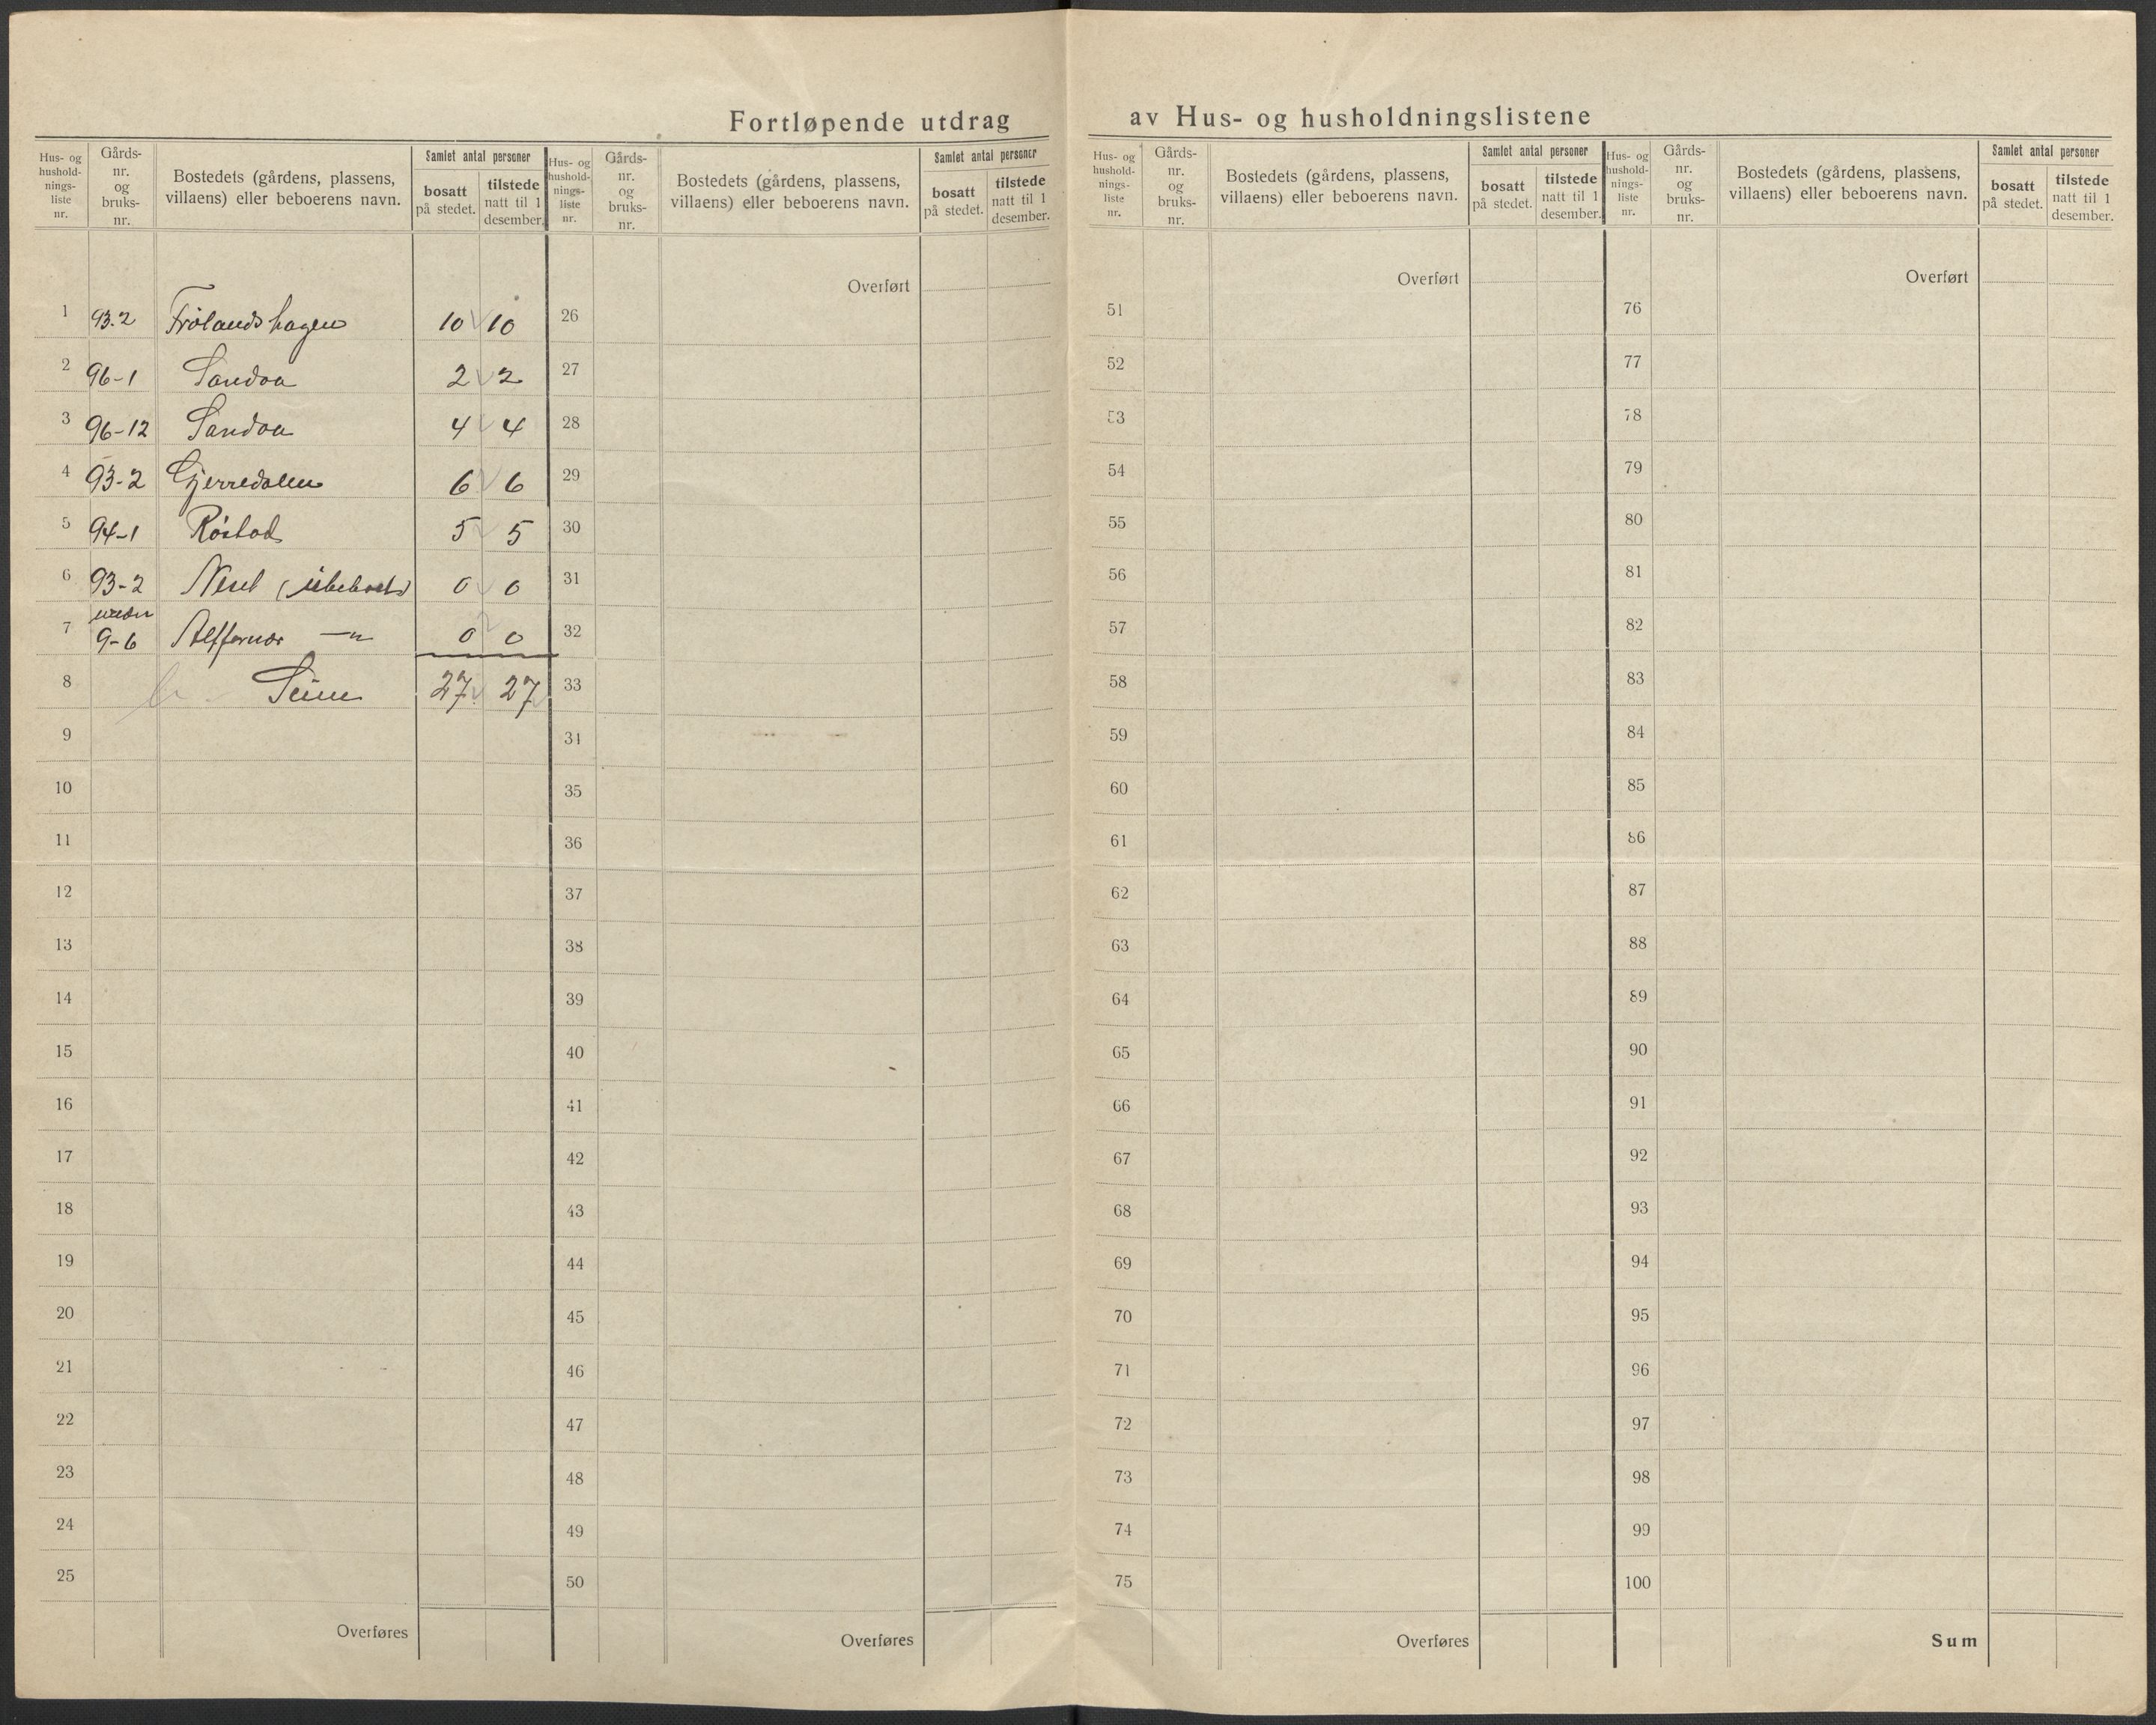 Fortløpende utdrag av Hus- og husholdningslistene
Hus- og hushold- nings- liste nr.
Gårds- nr. og bruks- nr.
Bostedets (gårdens, plassens, villaens) eller beboerens navn.
Samlet antal personer
bosatt på stedet.
tilstede natt til 1 desember.
1 93.2 Frølandshagen 10 10
2 96-1 Sandoa 2 2
3 96-12 Sandoa 4 4
4 93-2 Gjerredalen 6 6
5 94-1 Röstad 5 5
6 93-2 Neset (übeboet) 0 0
7 under 9-6 0 0
8 Sum 27 27
9
10
11
12
13
14
15
16
17
18
19
20
21
22
23
24
25
Overføres
Hus- og hushold- nings- liste nr.
Gårds- nr. og bruks- nr.
Bostedets (gårdens, plassens, villaens) eller beboerens navn.
Samlet antal personer
bosatt på stedet.
tilstede natt til 1 desember.
Overført
26
27
28
29
30
31
32
33
34
35
36
37
38
39
40
41
42
43
44
45
46
47
48
49
50
Overføres
Hus- og hushold- nings- liste nr.
Gårds- nr. og bruks- nr.
Bostedets (gårdens, plassens, villaens) eller beboerens navn.
Samlet antal personer
bosatt på stedet.
tilstede natt til 1 desember.
Overført
51
52
53
54
55
56
57
58
59
60
61
62
63
64
65
66
67
68
69
70
71
72
73
74
75
Overføres
Hus- og hushold- nings- liste nr.
Gårds- nr. og bruks- nr.
Bostedets (gårdens, plassens, villaens) eller beboerens navn.
Samlet antal personer
bosatt på stedet.
tilstede natt til 1 desember.
Overført
76
77
78
79
80
81
82
83
84
85
86
87
88
89
90
91
92
93
94
95
96
97
98
99
100
Sum